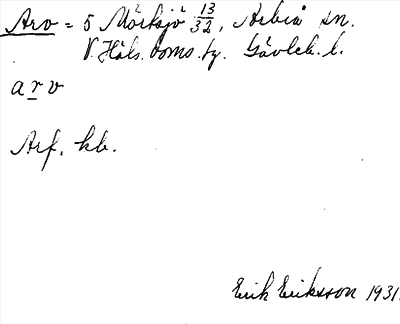 Arv = 5 Mörksjö 13/32, Arbrå sn.
V. Häls. doms. fg. Gävleb. l.
arv
Arf. kb.
Erik Eriksson 1931.